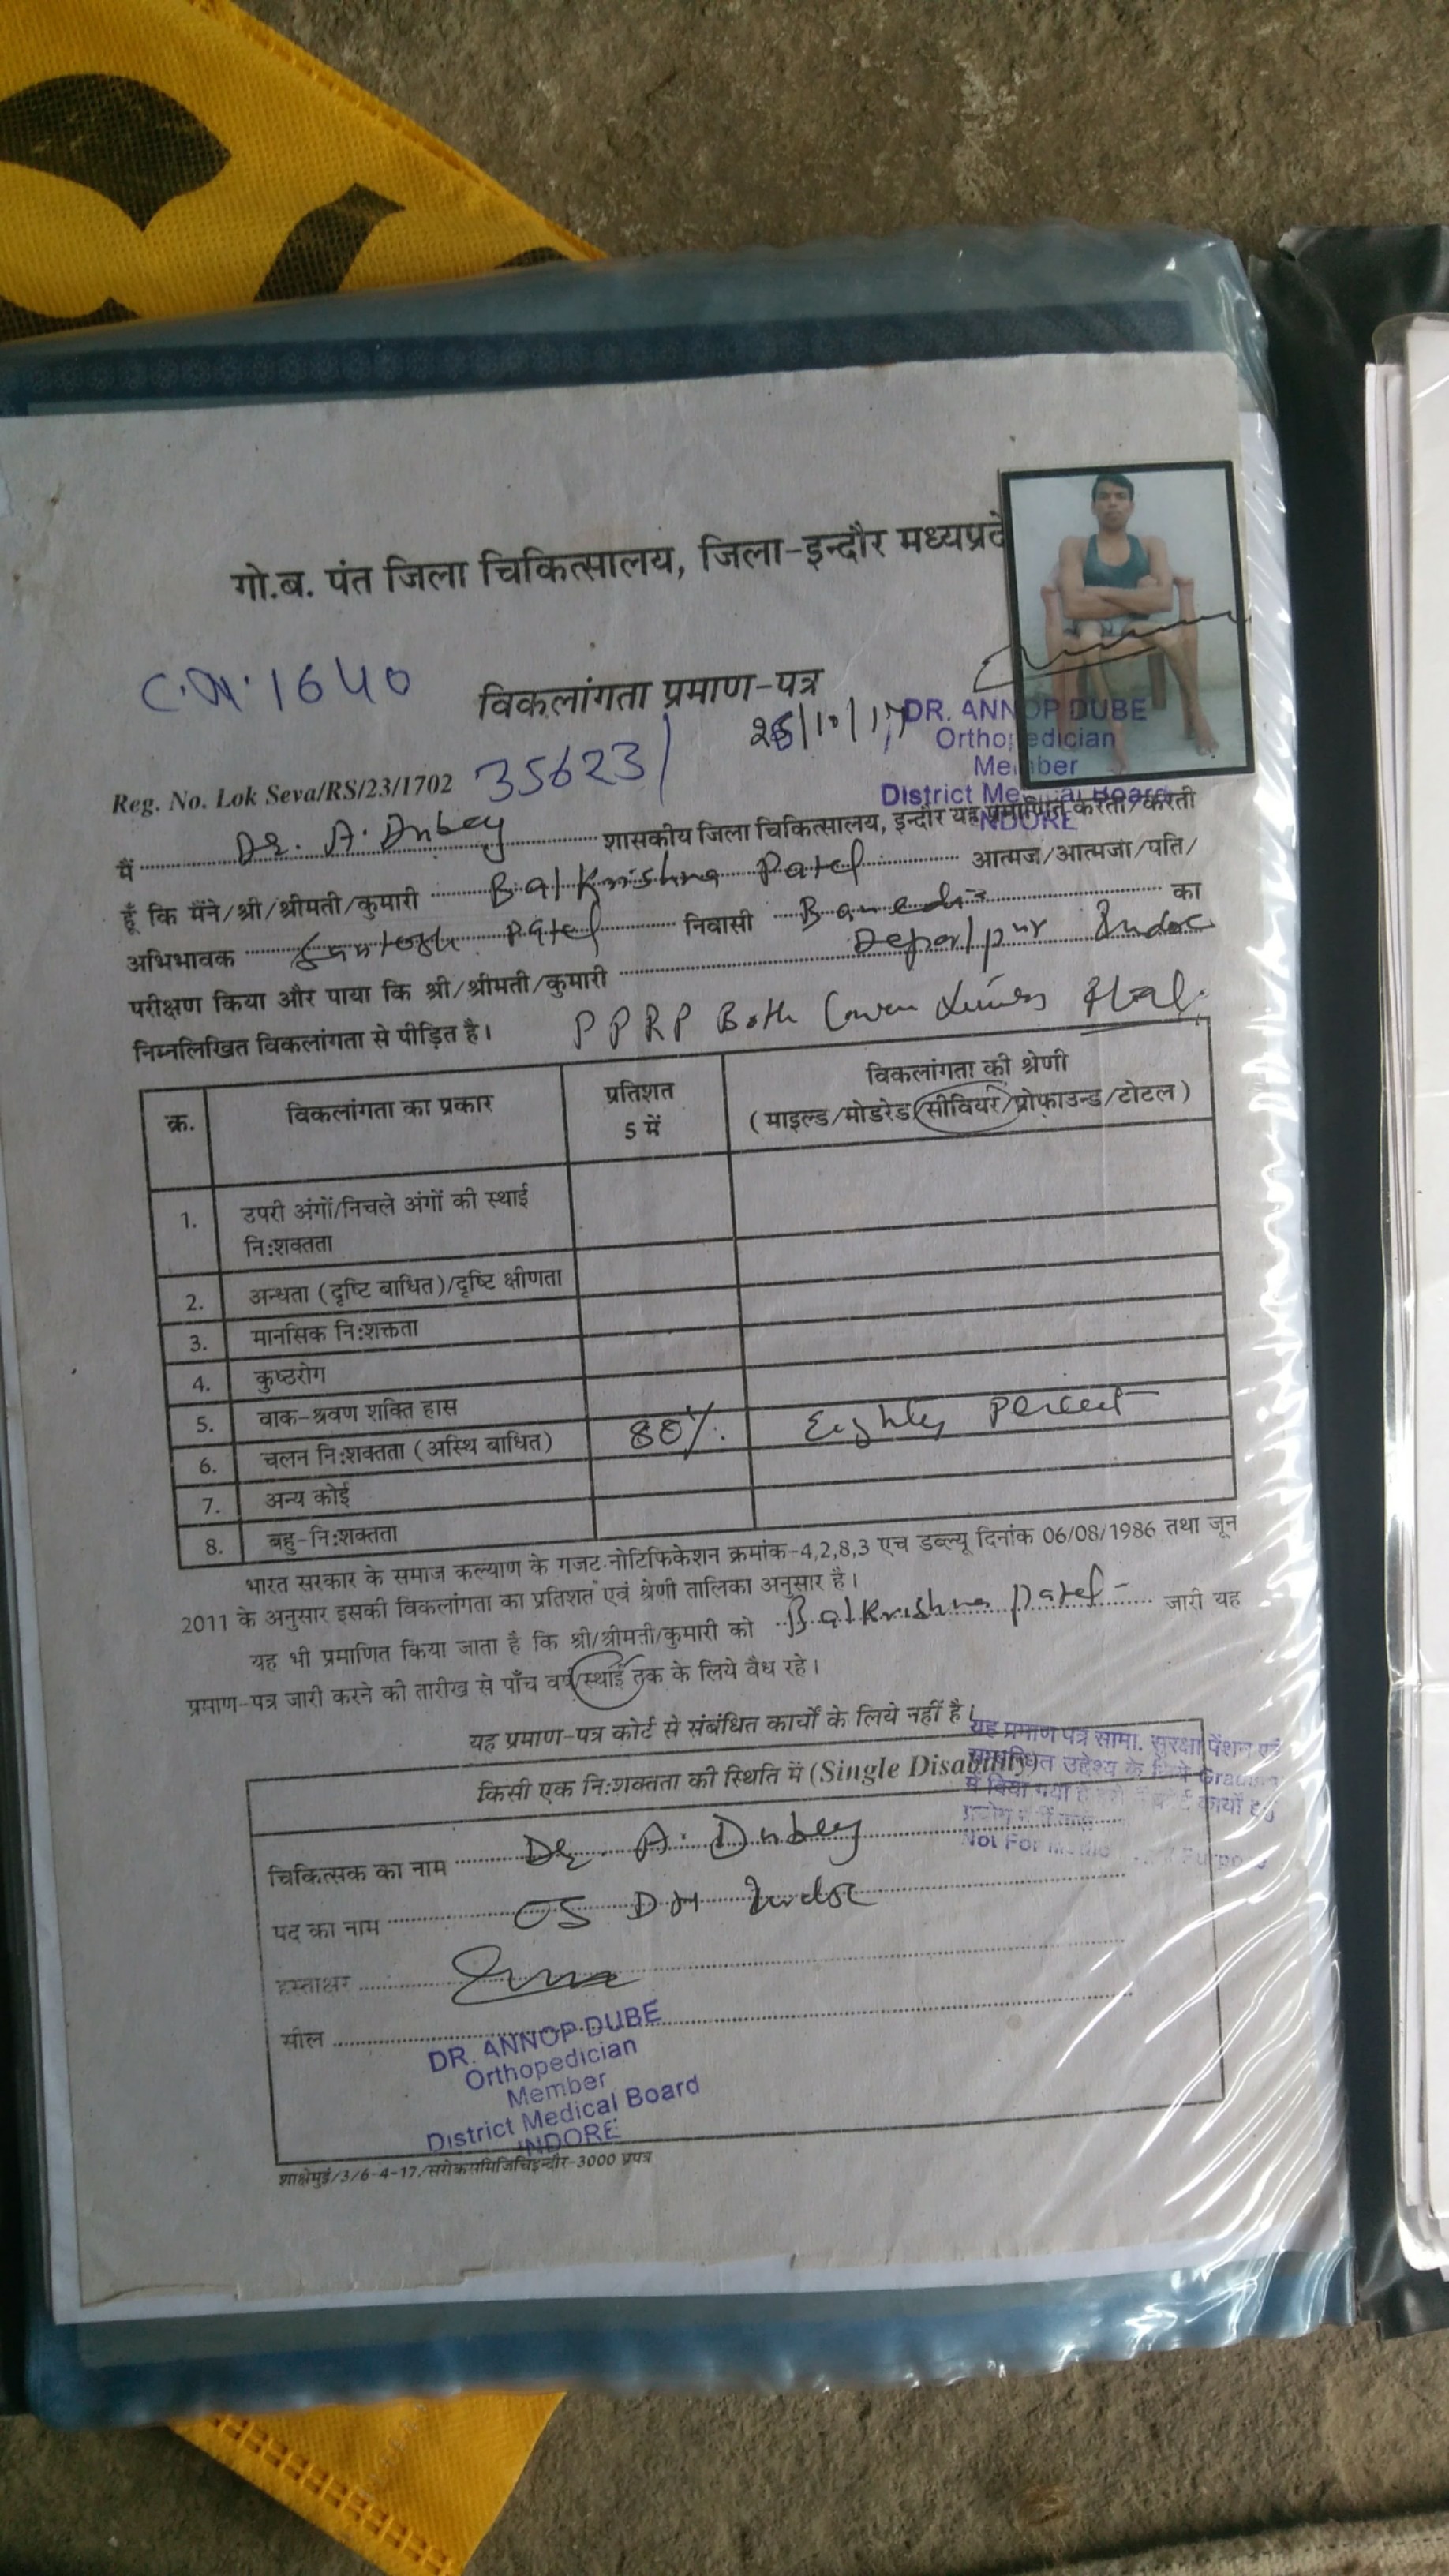 गो.ब. पंत जिला चिकित्सालय, जिला-इन्दौर मध्यप्रदे
C.N. 1640
विकलांगता प्रमाण-पत्र
Reg. No. Lok Seva/RS/23/1702 35623/ /10/17
DR. ANNOP DUBE
Orthopedician
Member
District Medical Board
INDORE
मैं Dr. A. Dubey शासकीय जिला चिकित्सालय, इन्दौर यह प्रमाणित करता/करती
हूँ कि मैंने/श्री/श्रीमती/कुमारी Balkrishna Patel आत्मज/आत्मजा/पति/
अभिभावक Santosh Patel निवासी का
परीक्षण किया और पाया कि श्री/श्रीमती/कुमारी Depalpur Indore
निम्नलिखित विकलांगता से पीड़ित है। PPRP Both Lower Limbs
क्र. विकलांगता का प्रकार प्रतिशत 5 में विकलांगता की श्रेणी
(माइल्ड/मोडरेड/सीवियर/प्रोफाउन्ड/टोटल)
1. उपरी अंगों/निचले अंगों की स्थाई
नि:शक्तता
2. अन्धता (दृष्टि बाधित)/दृष्टि क्षीणता
3. मानसिक नि:शक्तता
4. कुष्ठरोग
5. वाक-श्रवण शक्ति हास
6. चलन नि:शक्तता (अस्थि बाधित) 80% Eighty Percent
7. अन्य कोई
8. बहु-नि:शक्तता
भारत सरकार के समाज कल्याण के गजट नोटिफिकेशन क्रमांक-4,2,8,3 एच डब्ल्यू दिनांक 06/08/1986 तथा जून
2011 के अनुसार इसकी विकलांगता का प्रतिशत एवं श्रेणी तालिका अनुसार है।
यह भी प्रमाणित किया जाता है कि श्री/श्रीमती/कुमारी को Balkrishna Patel जारी यह
प्रमाण-पत्र जारी करने की तारीख से पाँच वर्ष/स्थाई तक के लिये वैध रहे।
यह प्रमाण-पत्र कोर्ट से संबंधित कार्यों के लिये नहीं है।
यह प्रमाण पत्र सामा. सुरक्षा पेंशन एवं
उद्देश्य के लिये
में दिया गया है
Not For
किसी एक नि:शक्तता की स्थिति में (Single Disability)
चिकित्सक का नाम Dr. A. Dubey
पद का नाम OS DH Indore
हस्ताक्षर
सील
DR. ANNOP DUBE
Orthopedician
Member
District Medical Board
INDORE